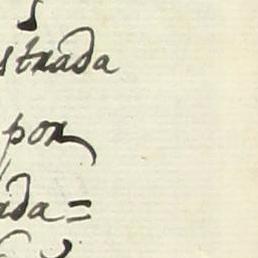 strada
por
ada=